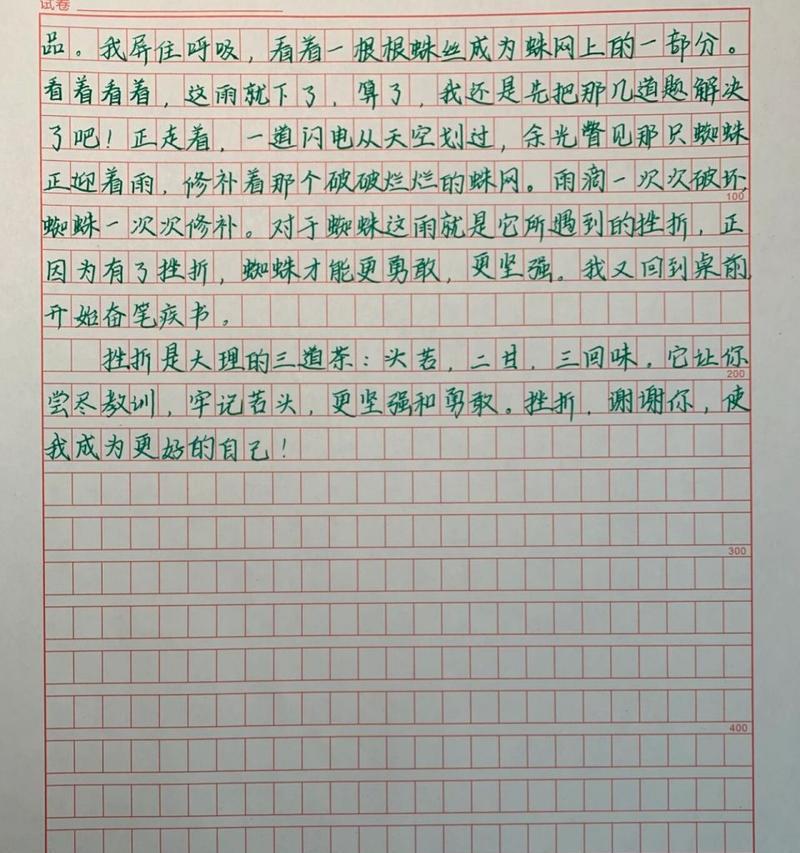 试卷
品。我屏住呼吸，看着一根根蛛丝成为蛛网上的一部分。
看着看着，这雨就下了，算了，我还是先把那几道题解决
了吧！正走着，一道闪电从天空划过，余光瞥见那只蜘蛛
正迎着雨，修补着那个破破烂烂的蛛网。雨滴一次次破坏，
100
蜘蛛一次次修补。对于蜘蛛这雨就是它所遇到的挫折，正
因为有了挫折，蜘蛛才能更勇敢，更坚强。我又回到桌前，
开始奋笔疾书。
挫折是大理的三道茶：头苦，二甘，三回味。它让你
200
尝尽教训，牢记苦头，更坚强和勇敢。挫折，谢谢你，使
我成为更好的自己！
300
400